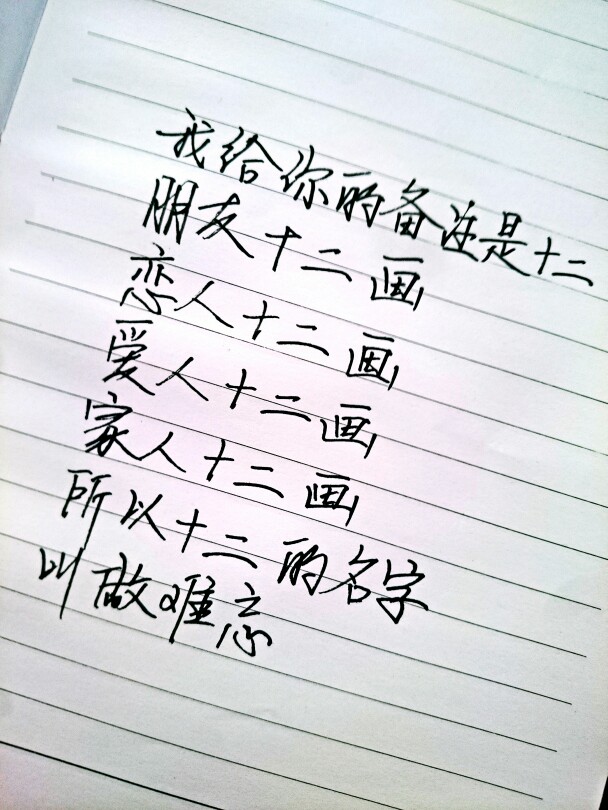 我给你的备注是十二
朋友十二画
恋人十二画
爱人十二画
家人十二画
所以十二的名字
叫做难忘